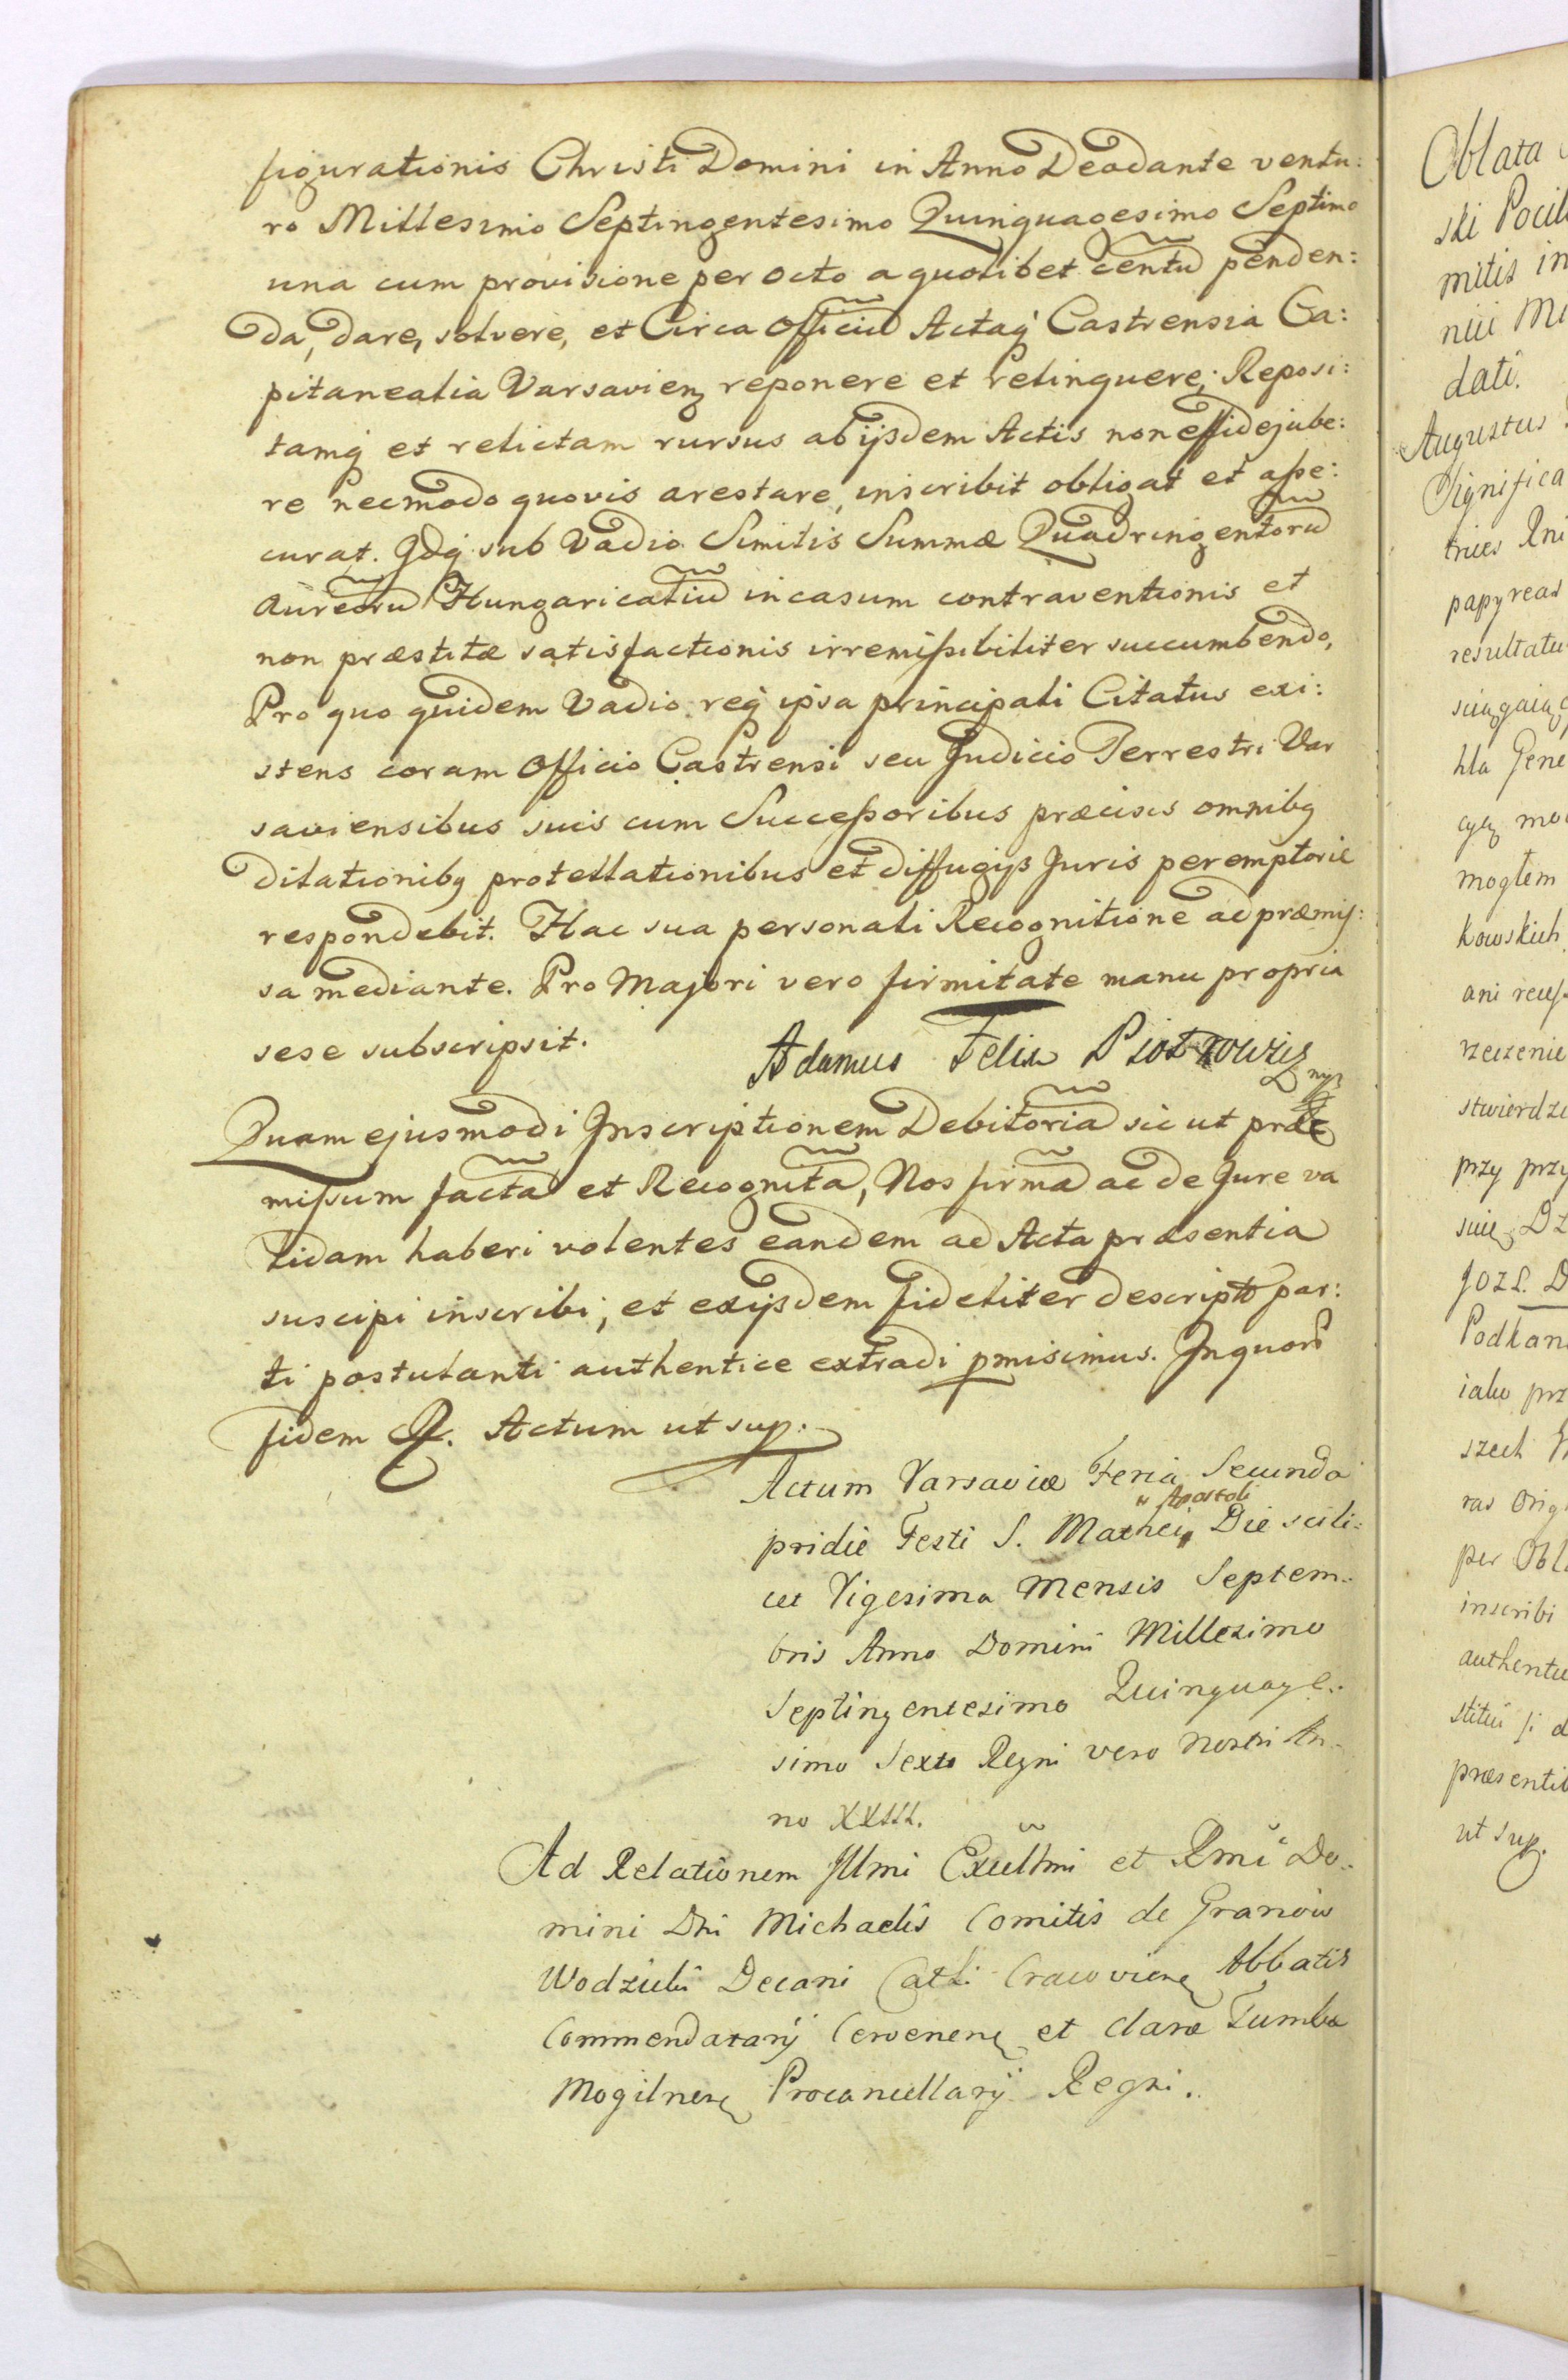 figurationis Christi Domini in Anno Deodante ventu:
ro Millesimo Septingentesimo Quinquagesimo Septimo
una cum provisione per octo a quolibet centũ penden:
da, dare, solvere, et Circa Officiũ Actaq̃ Castrensia Ca:
pitanealia Varsavienꝫ reponere et relinquere; Reposi:
tamq́ et relictam rursus ab ijsdem Actis non effidejube:
re necmodo quovis arestare, inscribit obligat et aſse:
curat. Idq́ sub Vadio Similis Summæ Quadringentorũ
Aureorũ Hungaricaliũ in casum contraventionis et
non præstitæ satisfactionis irremiſsibiliter succumbendo,
Pro quo quidem Vadio req́ ipsa principali Citatus exi:
stens coram Officio Castrensi seu Judicio Terrestri Var
saviensibus suis cum Succeſsoribus præcisis omnibꝫ
dilationibꝫ protellationibus et diffugijs Juris peremptorie
respondebit. Hac sua personali Recognitione ad præmiſ:
sa mediante. Pro Majori vero firmitate manu propria
sese subscripsit.
Adamus Felix Piotrowicz mp
Quam ejusmodi Inscriptionem Debitoriã sic ut præ
miſsum factã et Recognitã, Nos firmã ac de Jure va
lidam haberi volentes eandem ad Acta præsentia
suscipi inscribi, et exijsdem fideliter descriptã par:
ti postulanti authentice extradi pmisimus. Inquorũ
fidem Actum ut sup:
Actum Varsaviæ Feria Secunda
pridie Festi S. Mathei " Apostoli Die scili:
cet Vigesima Mensis Septem:
bris Anno Domini Millesimo
Septingentesimo Quinquage:
simo Sexto Regni vero Nostri An:
no XXIII.
Ad Relationem Illmi Excellmi et Rmi Do:
mini Dni Michaelis Comitis de Granow
Wodzicki Decani Cathi Cracovienꝫ Abbatis
Commendatarij Cervenenꝫ et claræ Tumbæ
Mogilnenꝫ Procancellarij Regni.
Oblata
ski
mitis in
nili
dati.
Augustus
Significa
trices
papyreas
resultatu
hta Gene
mogłem
kowskich
ani
rzeczenie
stwierdze
przy przy
suie Dz
Jozs. D
Podkan
iako prz
szech
ras Orig
per Obl
inscribi
authentic
stitui si d
præsentib
ut sup.